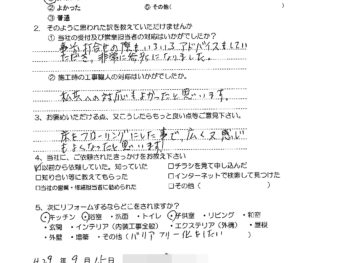 ② よかった ⑤ その他(
③ 普通
2. そのように思われた訳を教えていただけませんか
① 当社の受付及び営業担当者の対応はいかがでしたか？
事前打合せの際もいろいろアドバイスをしてい
ただき、非常に参考になりました。
② 施工時の工事職人の対応はいかがでしたか？
私共への対応もよかったと思います。
3. お褒めいただける点、又こうしたらもっと良い点等ご意見下さい。
床をフローリングにした事で、広く又感じ
もよくなったと思います！
4. 当社に、ご依頼されたきっかけをお教え下さい
☑以前から依頼していた。知っていた □チラシを見て申し込んだ
□知り合い等に教えてもらった □インターネットで検索して見つけた
□当社の営業・増組担当者に勧められた □その他(
5. 次にリフォームするならどこをされますか？
・キッチン ・浴室 ・洗面 ・トイレ ・子供室 ・リビング ・和室
・玄関 ・インテリア(内装工事全般) ・エクステリア(外構) ・屋根
・外壁 ・増築 ・その他(バリアフリー化をしたい)
H29年9月15日